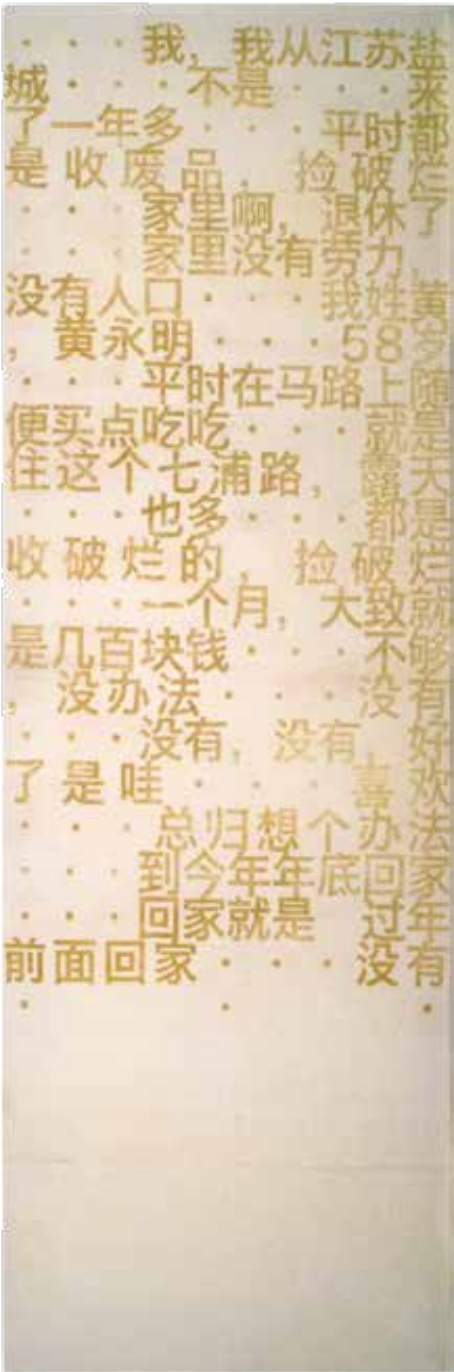 ・・・我，我从江苏盐
城・・・不是・・・来
了一年多・・・平时都
是收废品，捡破烂
・・・家里啊，退休了
・・・家里没有劳力，
没有人口・・・我姓黄
，黄永明・・・58岁
・・・平时在马路上随
便买点吃吃・・・就是
住这个七浦路，露天
・・・也多・・・都是
收破烂的，捡破烂
・・・一个月，大致就
是几百块钱・・・不够
，没办法・・・没有
・・・没有，没有，好
了是哇・・・喜欢
・・・总归想个办法
・・・到今年年底回家
・・・回家就是 过年
前面回家・・・没有
・・・